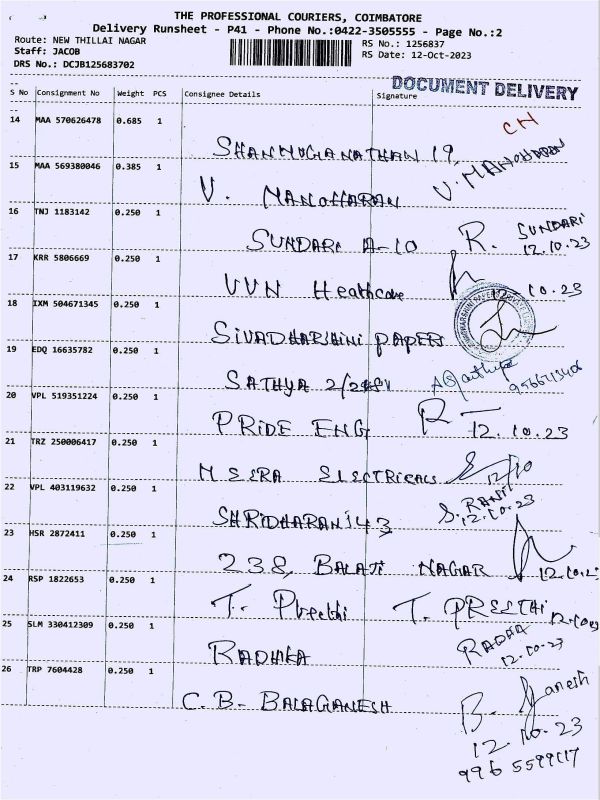 THE PROFESSIONAL COURIERS, COIMBATORE
Delivery Runsheet - P41 - Phone No.:0422-3505555 - Page No.:2
Route: NEW THILLAI NAGAR
RS No.: 1256837
Staff: JACOB
RS Date: 12-Oct-2023
DRS No.: DCJB125683702
DOCUMENT DELIVERY
S No Consignment No Weight PCS Consignee Details Signature
CH
14 MAA 570626478 0.685 1
SHANMUGANATHAN 19, V. MANOHARAN
15 MAA 569380046 0.385 1
V. MANOHARAN
16 TNJ 1183142 0.250 1
SUNDARI A-10 R. SUNDARI 12.10.23
17 KRR 5806669 0.250 1
VVN Heathcare 12.10.23
18 IXM 504671345 0.250 1
SIVADHARSHINI PAPERS
19 EDQ 16635782 0.250 1
SATHYA
20 VPL 519351224 0.250 1
PRIDE ENG 12.10.23
21 TRZ 250006417 0.250 1
MEERA ELECTRICALS 12/10
22 VPL 403119632 0.250 1
SHRIDHARAN 143 S. RANI 12.10.23
23 HSR 2872411 0.250 1
238, BALAJI NAGAR 12.10.2
24 RSP 1822653 0.250 1
T. Preethi T. PREETHI
25 SLM 330412309 0.250 1
RADHIKA RADHA 12.10.23
26 TRP 7604428 0.250 1
C.B. BALAGANESH B. Ganesh
12.10.23